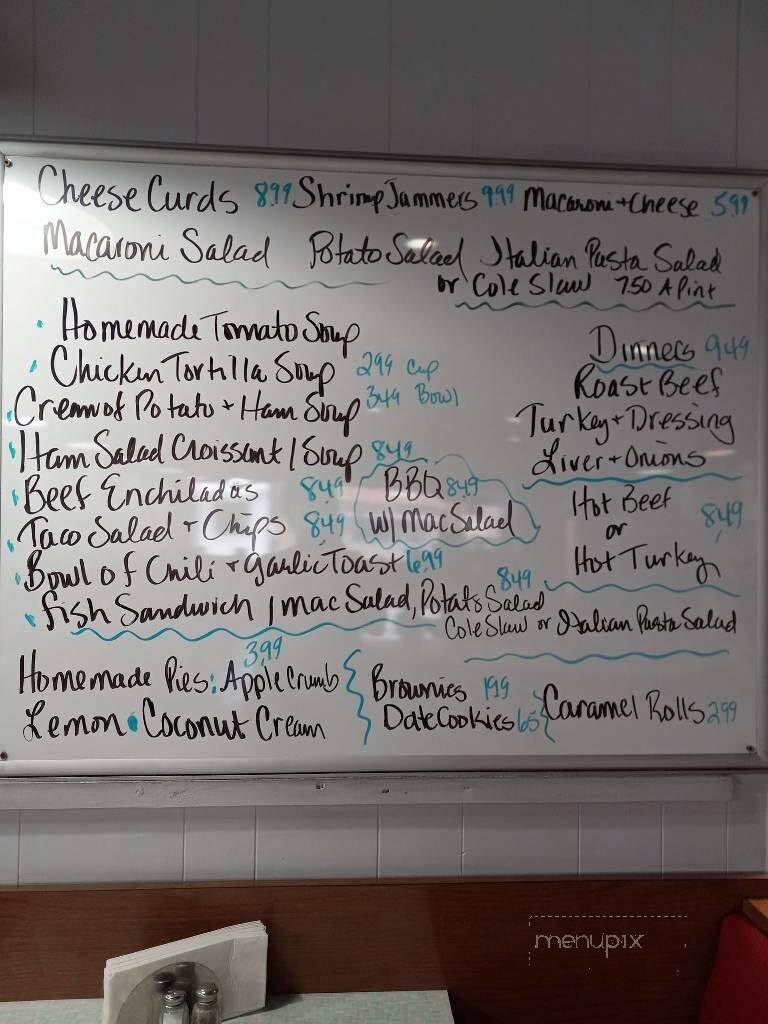 Cheese Curds 8.99 Shrimp Jammers 9.99 Macaroni + Cheese 5.99
Macaroni Salad Potato Salad Italian Pasta Salad
or Cole Slaw 7.50 A Pint
Homemade Tomato Soup
Chicken Tortilla Soup 2.99 Cup
Cream of Potato + Ham Soup 3.49 Bowl
Ham Salad Croissant / Soup 8.49
Beef Enchiladas 8.49
Taco Salad + Chips 8.49
BBQ 8.49
w/ Mac Salad
Bowl of Chili + Garlic Toast 6.99
Fish Sandwich / Mac Salad, Potato Salad 8.49
Cole Slaw or Italian Pasta Salad
Dinners 9.49
Roast Beef
Turkey + Dressing
Liver + Onions
Hot Beef
or 8.49
Hot Turkey
3.99
Homemade Pies: Apple Crumb
Lemon • Coconut Cream
Brownies 1.99
Date Cookies 65
Caramel Rolls 2.99
menupix